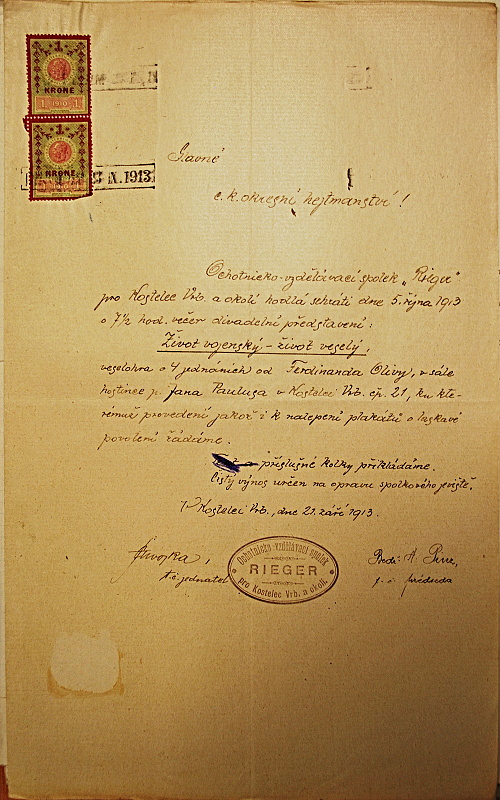 1
KRONE
1 1910 1
1
KRONE
A. 1913
Slavné
c. k. okresní hejtmanství!
Ochotnicko-vzdělávací spolek „Rieger"
pro Kostelec Vrb. a okolí hodlá sehráti dne 5. října 1913
o 7½ hod. večer divadelní představení:
Život vojenský - život veselý,
veselohra o 4 jednáních od Ferdinanda Olivy, v sále
hostince p. Jana Paulusa v Kostelci Vrb. čp. 21, ku kte-
rémuž provedení jakož i k nalepení plakátů o laskavé
povolení žádáme.
příslušné kolky přikládáme.
Čistý výnos určen na opravu spolkového jeviště.
V Kostelci Vrb., dne 21. září 1913.
t. č. jednatel
Ochotnicko-vzdělávací spolek
RIEGER
pro Kostelec Vrb. a okolí.
A.
t. č. předseda